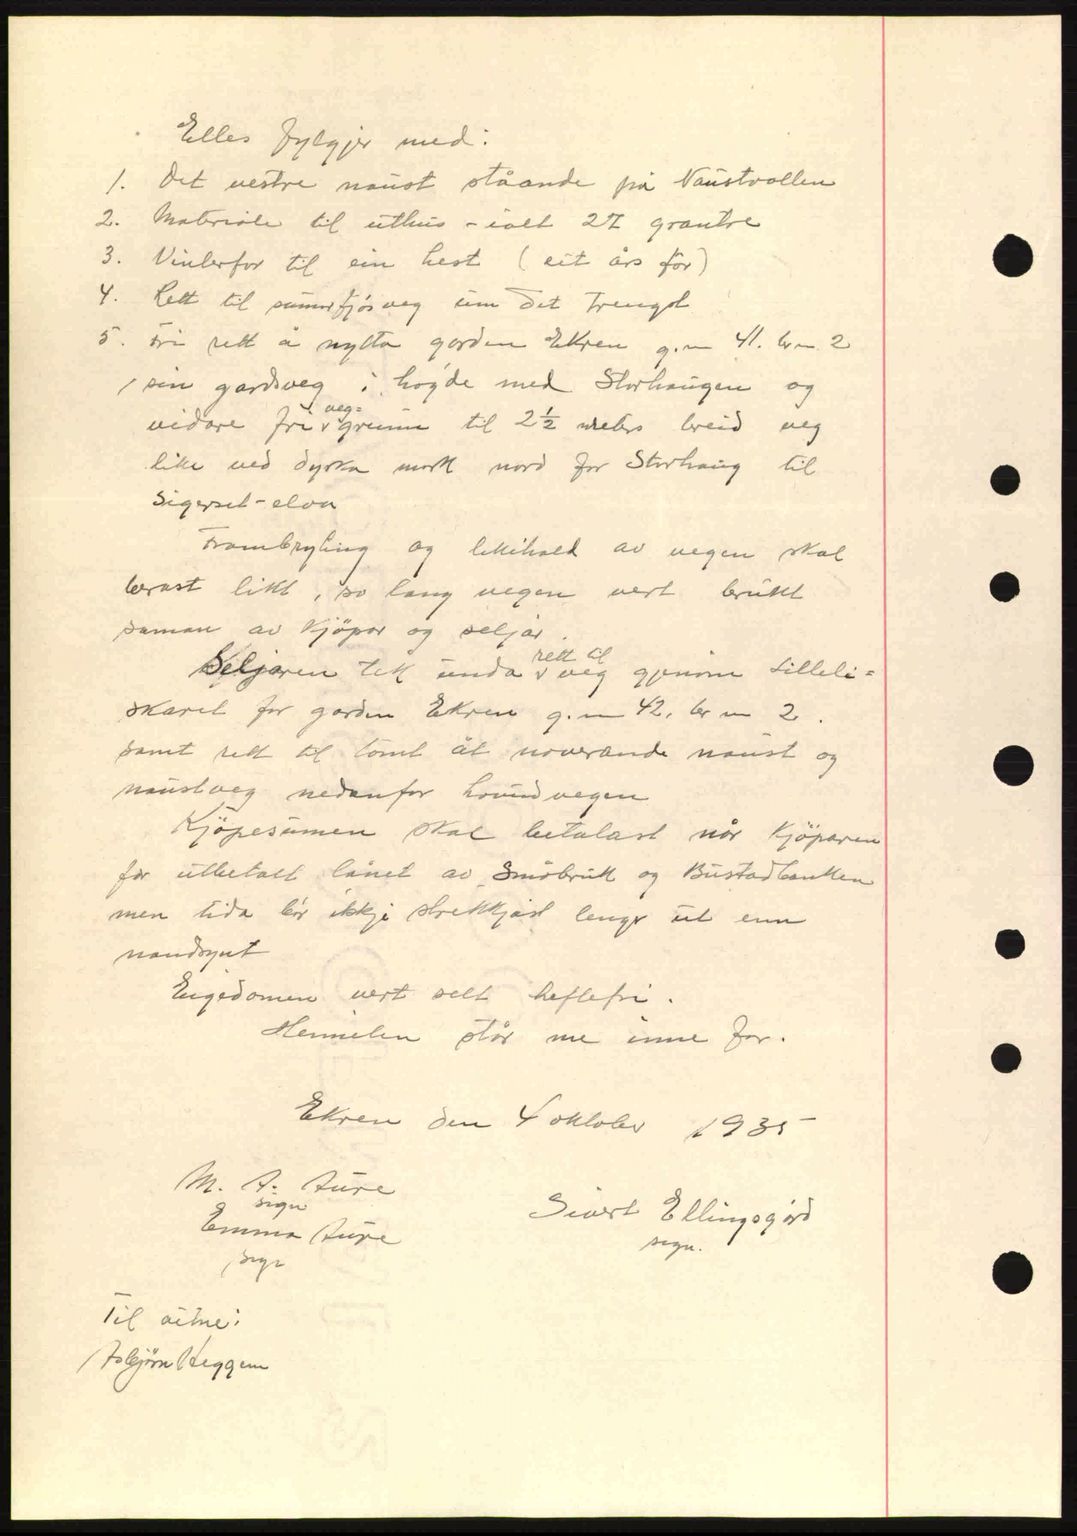 Elles fylgjer med:
1. Det vestre naust ståande på Naustvollen
2. Materiale til uthus - ialt 27 grantre
3. Vinterfor til ein hest (eit års fôr)
4. Rett til sumarfjösveg um det trengst
5. Fri rett å nytta garden Ekren g.n 41. br n 2
sin gardsveg i høgde med Storhaugen og
vidare fri veg= grunn til 2½ meters breid veg
like ved dyrka mark nord for Storhaug til
Sigerset-elva
Frambryting og likihald av vegen skal
berast likt, so lang vegen vert brukt
saman av kjöpar og seljar.
Seljaren tek unda rett til veg gjenom Lilleli=
skaret for garden Ekren g.n 42. br n 2.
samt rett til tomt åt noverande naust og
naustveg nedanfor hovudvegen
Kjöpesumen skal betalast når kjöparen
før utbetalt lånet av Småbruk og Bustadbanken
men tida bör ikkje strekkjast lengr ut enn
naudsynt
Eigedomen vert selt heftefri.
Hermelen står me inne for.
Ekren den 4 oktober 1935
M. A. Aure
sign
Emma Aure
sign
Sivert Ellingsgård
sign.
Til vitne:
Asbjörn Heggem